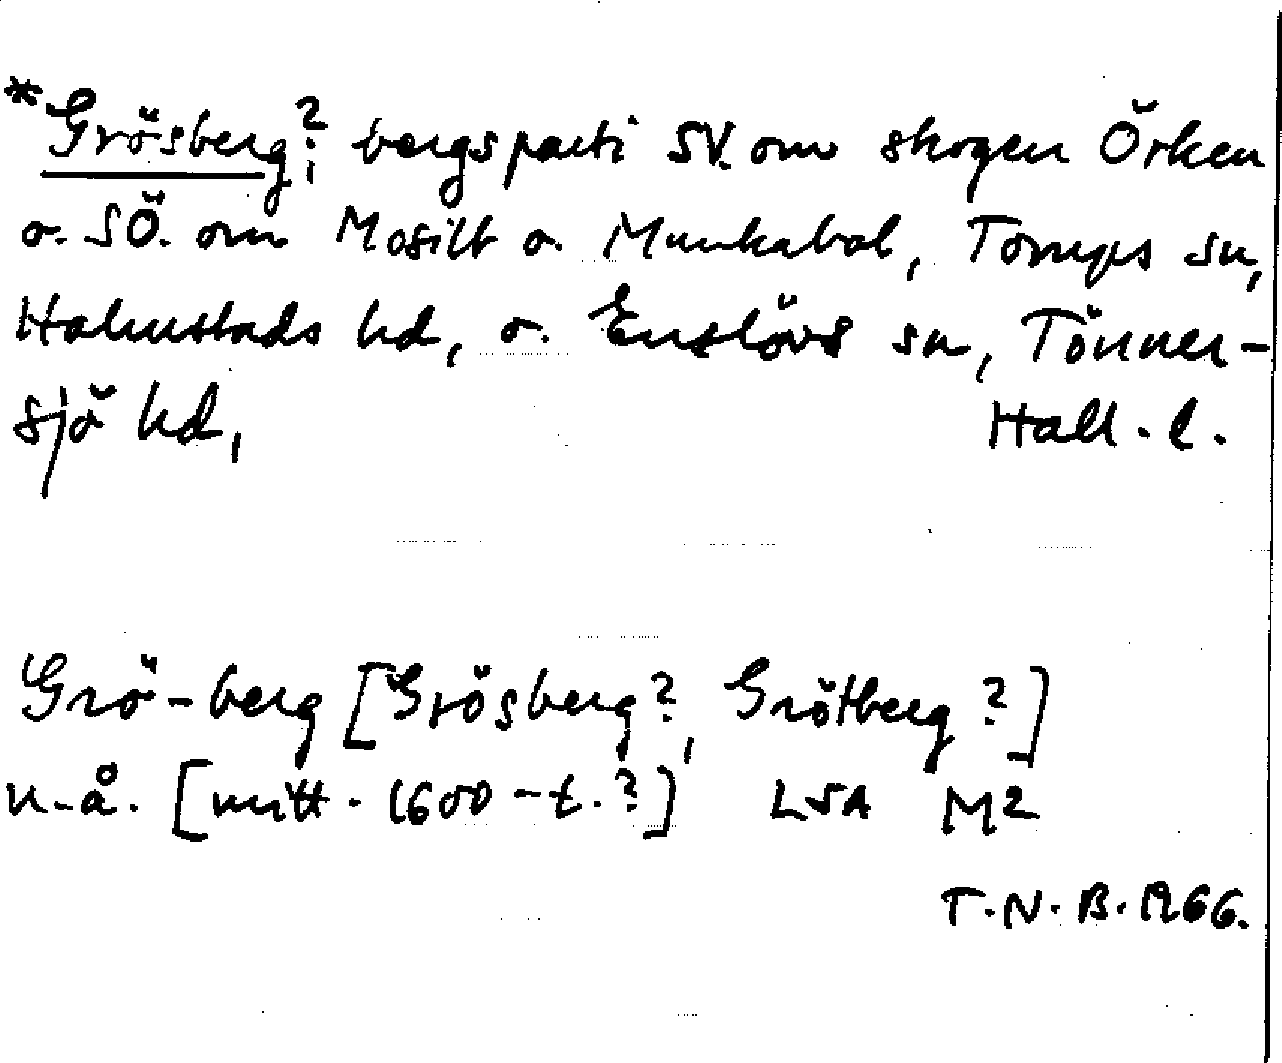 *Grösberg?, bergsparti SV. om skogen Örken
o. SÖ. om Mosilt o. Munkabol, Tönnersjö
Halmstads hd, o. Enslövs sn, Tönner-
sjö hd, Hall. l.
Grö-berg [Grösberg?, Grötberg?]
u.å. [mitt. 1600-t.?] LSA M2
T.N.B. 1966.